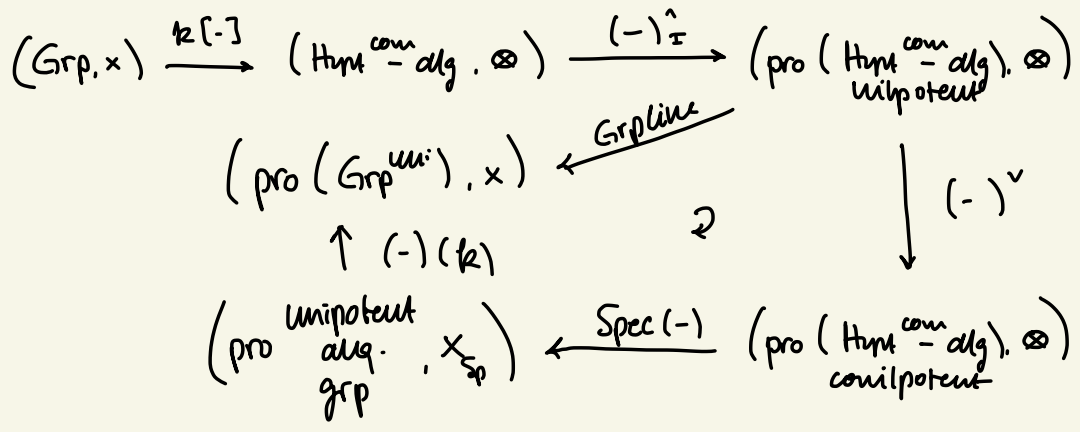 (Grp, ×) k[-] (Hopf com - alg , ⊗) (-)^_I (pro (Hopf com - alg), ⊗)
nilpotent
GrpLike
(pro (Grp uni), ×)
(-)^∨
(-)(k)
(pro unipotent alg. grp , ×_Sp) Spec(-) (pro (Hopf com - alg), ⊗)
conilpotent